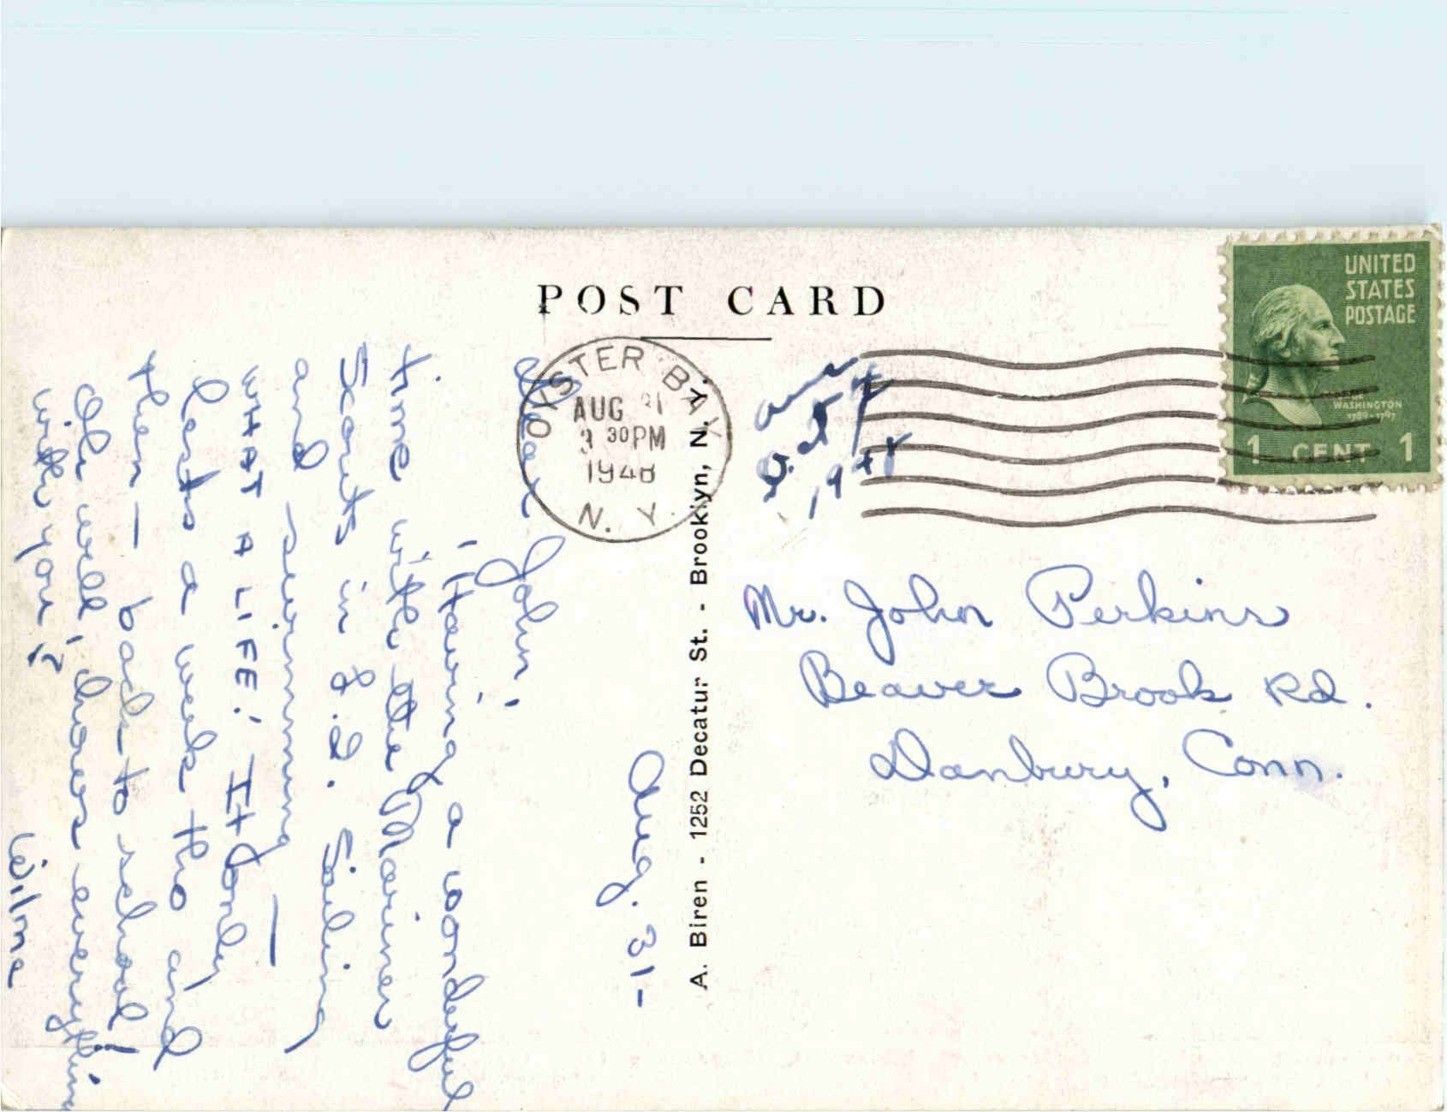 POST CARD
UNITED
STATES
POSTAGE
WASHINGTON
1 CENT 1
OYSTER BAY
AUG 31
3 30 PM
1948
N. Y.
ans
Oct 5th
1948
Mr. John Perkins
Beaver Brook Rd.
Danbury, Conn.
A. Biren - 1252 Decatur St. - Brooklyn, N. Y.
Aug. 31-
Dear John,
Having a wonderful
time with the Mariner
Scouts in L.I. Sailing
and swimming —
WHAT A LIFE! It only
lasts a week tho and
then — back to school!
Oh well, hows everything
with you!?
Wilma